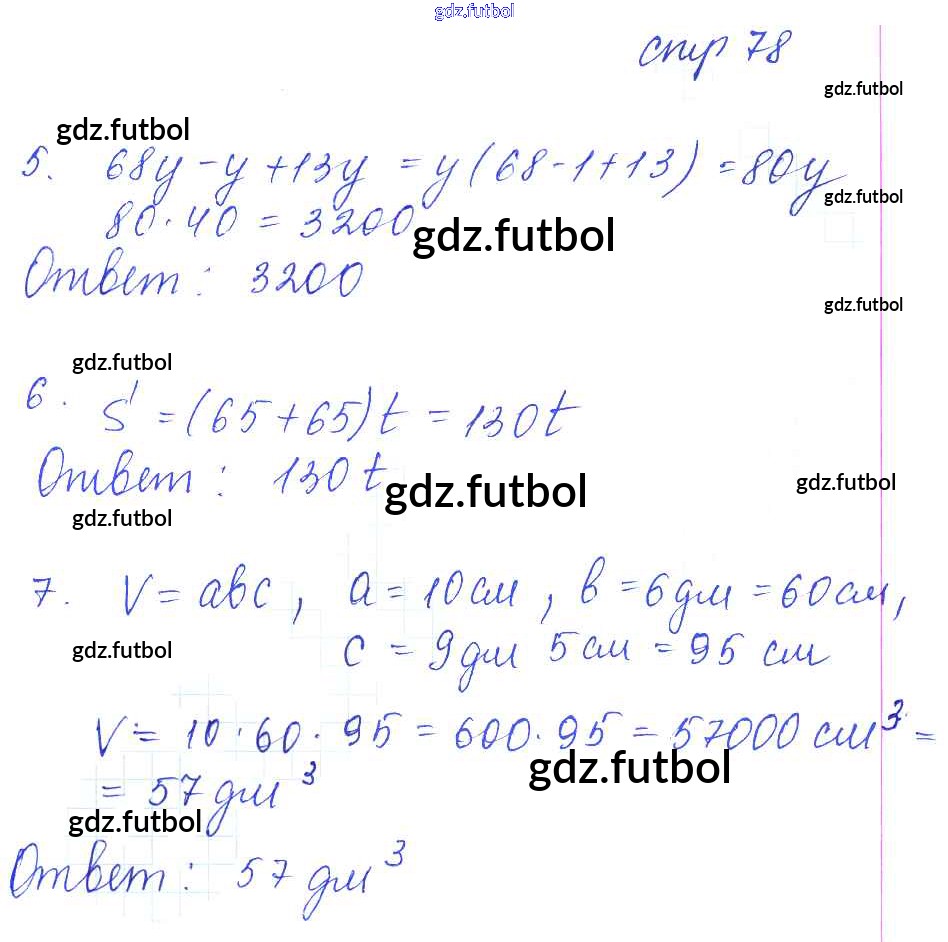 gdz.futbol
стр 78
gdz.futbol
gdz.futbol
5. 68y - y + 13y = y(68-1+13) = 80y
gdz.futbol
80·40 = 3200
gdz.futbol
Ответ: 3200
gdz.futbol
gdz.futbol
6. S = (65+65)t = 130t
Ответ: 130t
gdz.futbol
gdz.futbol
gdz.futbol
7. V = abc, a = 10см, b = 6дм = 60см,
c = 9дм 5см = 95 см
gdz.futbol
V = 10·60·95 = 600·95 = 57000 см³ =
gdz.futbol
= 57 дм³
gdz.futbol
Ответ: 57 дм³